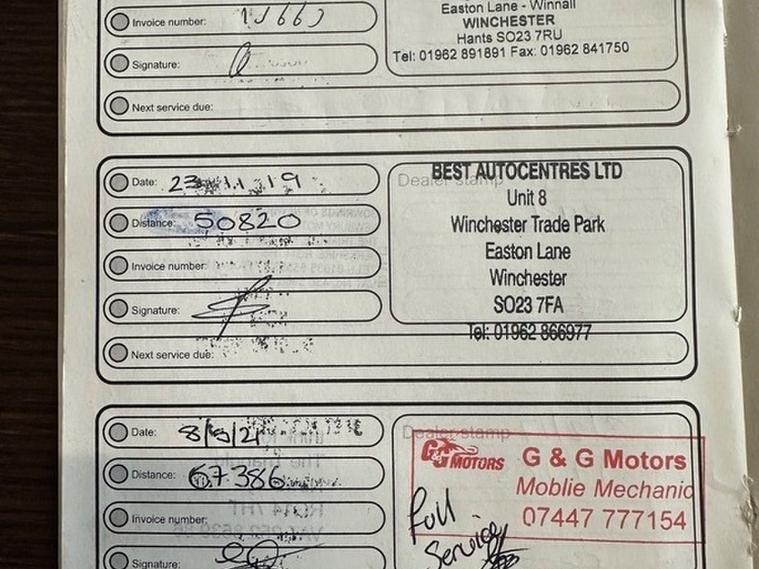 Easton Lane - Winnall
Invoice number:
WINCHESTER
Hants SO23 7RU
Signature:
Tel: 01962 891891 Fax: 01962 841750
Next service due:
BEST AUTOCENTRES LTD
Date: 23 11 19
Dealer stamp
Unit 8
Distance: 50820
Winchester Trade Park
Easton Lane
Invoice number:
Winchester
Signature:
SO23 7FA
Tel: 01962 866977
Next service due:
Date: 8/9/21
Dealer stamp
G&G MOTORS
G & G Motors
Distance: 67386
Moblie Mechanic
Invoice number:
07447 777154
Full
Service
Signature: